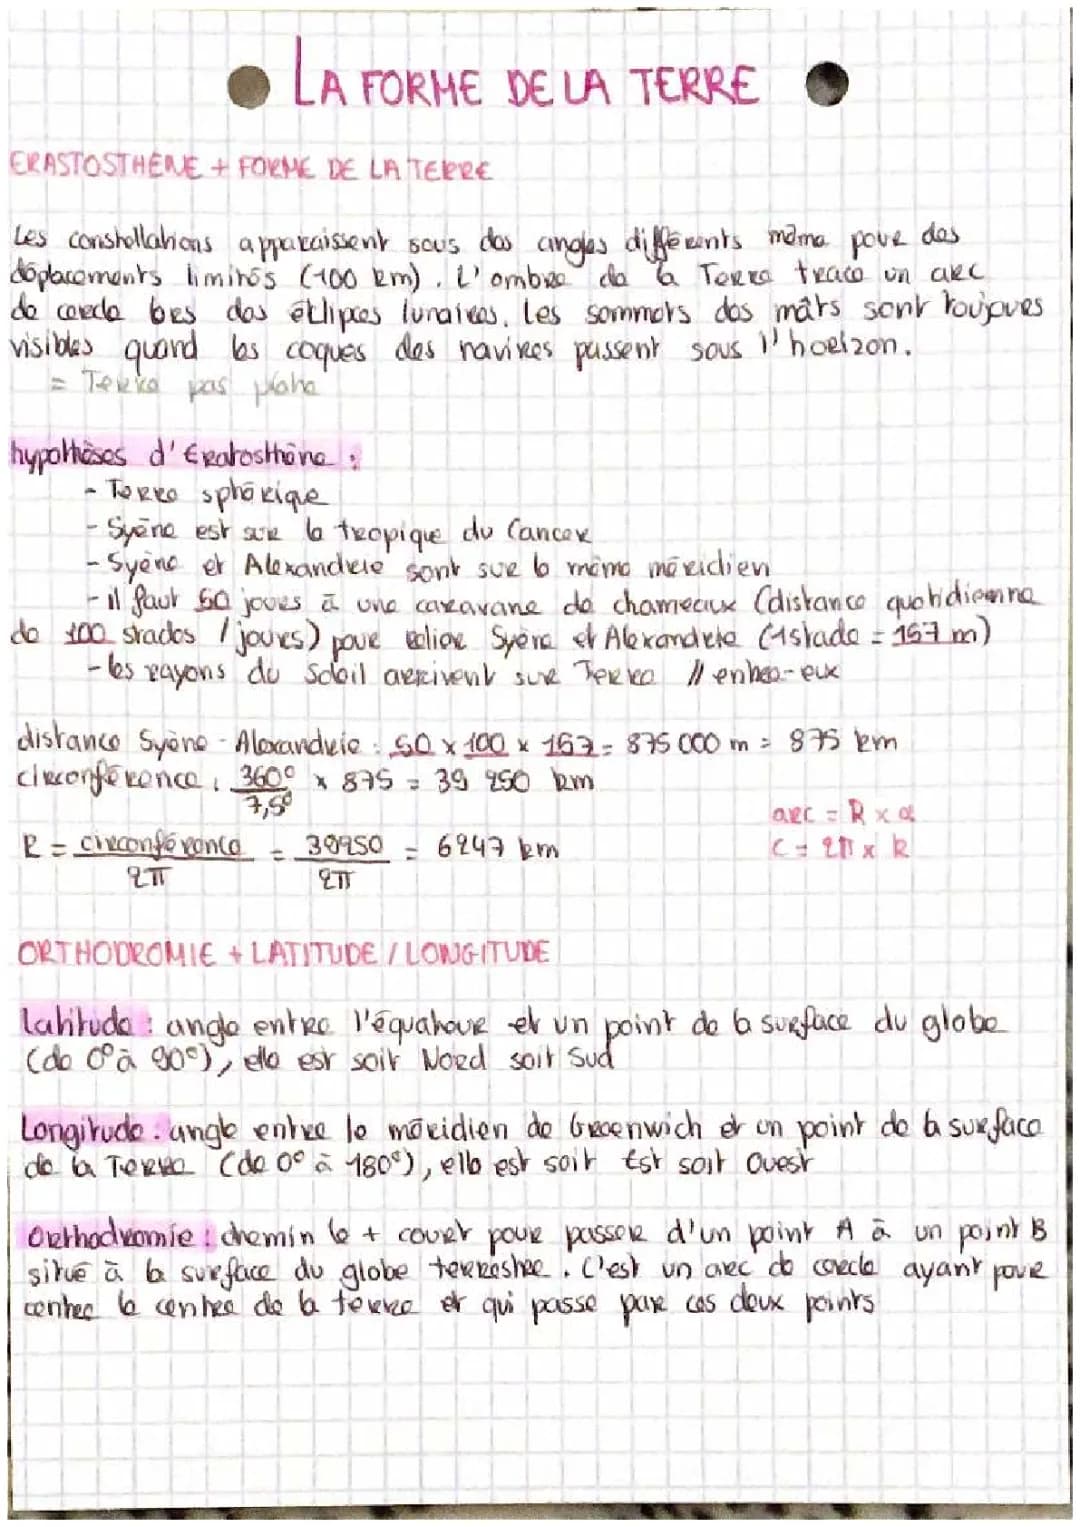 LA FORME DE LA TERRE
ERASTOSTHÈNE + FORME DE LA TERRE
Les constellations apparaissent sous des angles différents même pour des
déplacements limités (100 km). L'ombre de la Terre trace un arc
de cercle lors des éclipses lunaires. Les sommets des mâts sont toujours
visibles quand les coques des navires passent sous l'horizon.
= Terre pas plate
hypothèses d'Eratosthène :
- Terre sphérique
- Syène est sur le tropique du Cancer
- Syène et Alexandrie sont sur le même méridien
- il faut 50 jours à une caravane de chameaux (distance quotidienne
de 100 stades / jours) pour relier Syène et Alexandrie (1 stade = 157 m)
- les rayons du Soleil arrivent sur Terre // entre-eux
distance Syène - Alexandrie : 50 x 100 x 157 = 875 000 m = 875 km
circonférence : 360° / 7,5° x 875 = 39 250 km
R = circonférence / 2π = 39250 / 2π = 6247 km
arc = R x α
C = 2π x R
ORTHODROMIE + LATITUDE / LONGITUDE
Latitude : angle entre l'équateur et un point de la surface du globe
(de 0° à 90°), elle est soit Nord soit Sud
Longitude : angle entre le méridien de Greenwich et un point de la surface
de la Terre (de 0° à 180°), elle est soit Est soit Ouest
Orthodromie : chemin le + court pour passer d'un point A à un point B
situé à la surface du globe terrestre. C'est un arc de cercle ayant pour
centre le centre de la terre et qui passe par ces deux points